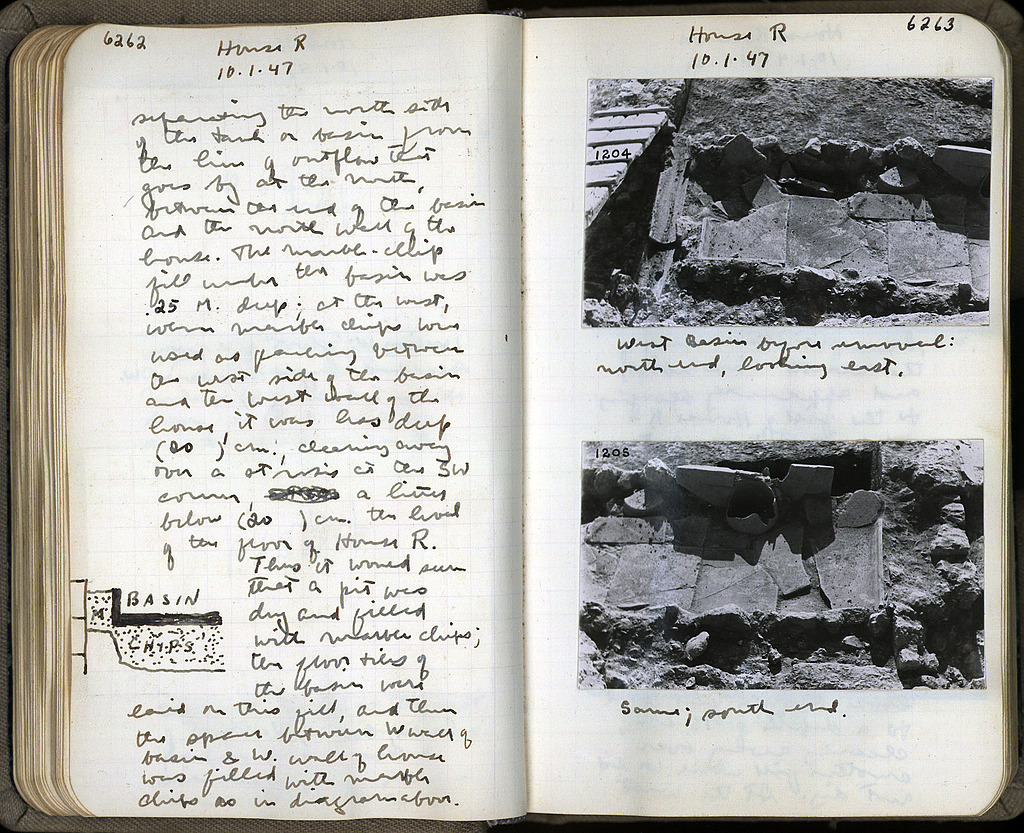 6262
House R
10.1.47
separating the north side
of the tank or basin from
the line of outflow that
goes by at the north,
between the end of the basin
and the north wall of the
house. The marble-chip
fill under the basin was
.25 M. deep; at the west,
where marble chips were
used as packing between
the west side of the basin
and the west wall of the
house, it was less deep
(20 ) cm.; cleaning away
over a at the SW
corner, a little
below (20 ) cm. the level
of the floor of House R.
Thus it would seem
that a pit was
dug and filled
with marble chips;
the floor tiles of
the basin were
laid on this fill, and then
the space between W wall of
basin & W. wall of house
was filled with marble
chips as in diagram above.
BASIN
CHIPS
6263
House R
10.1.47
1204
West Basin before removal:
north end, looking east.
1205
Same; south end.